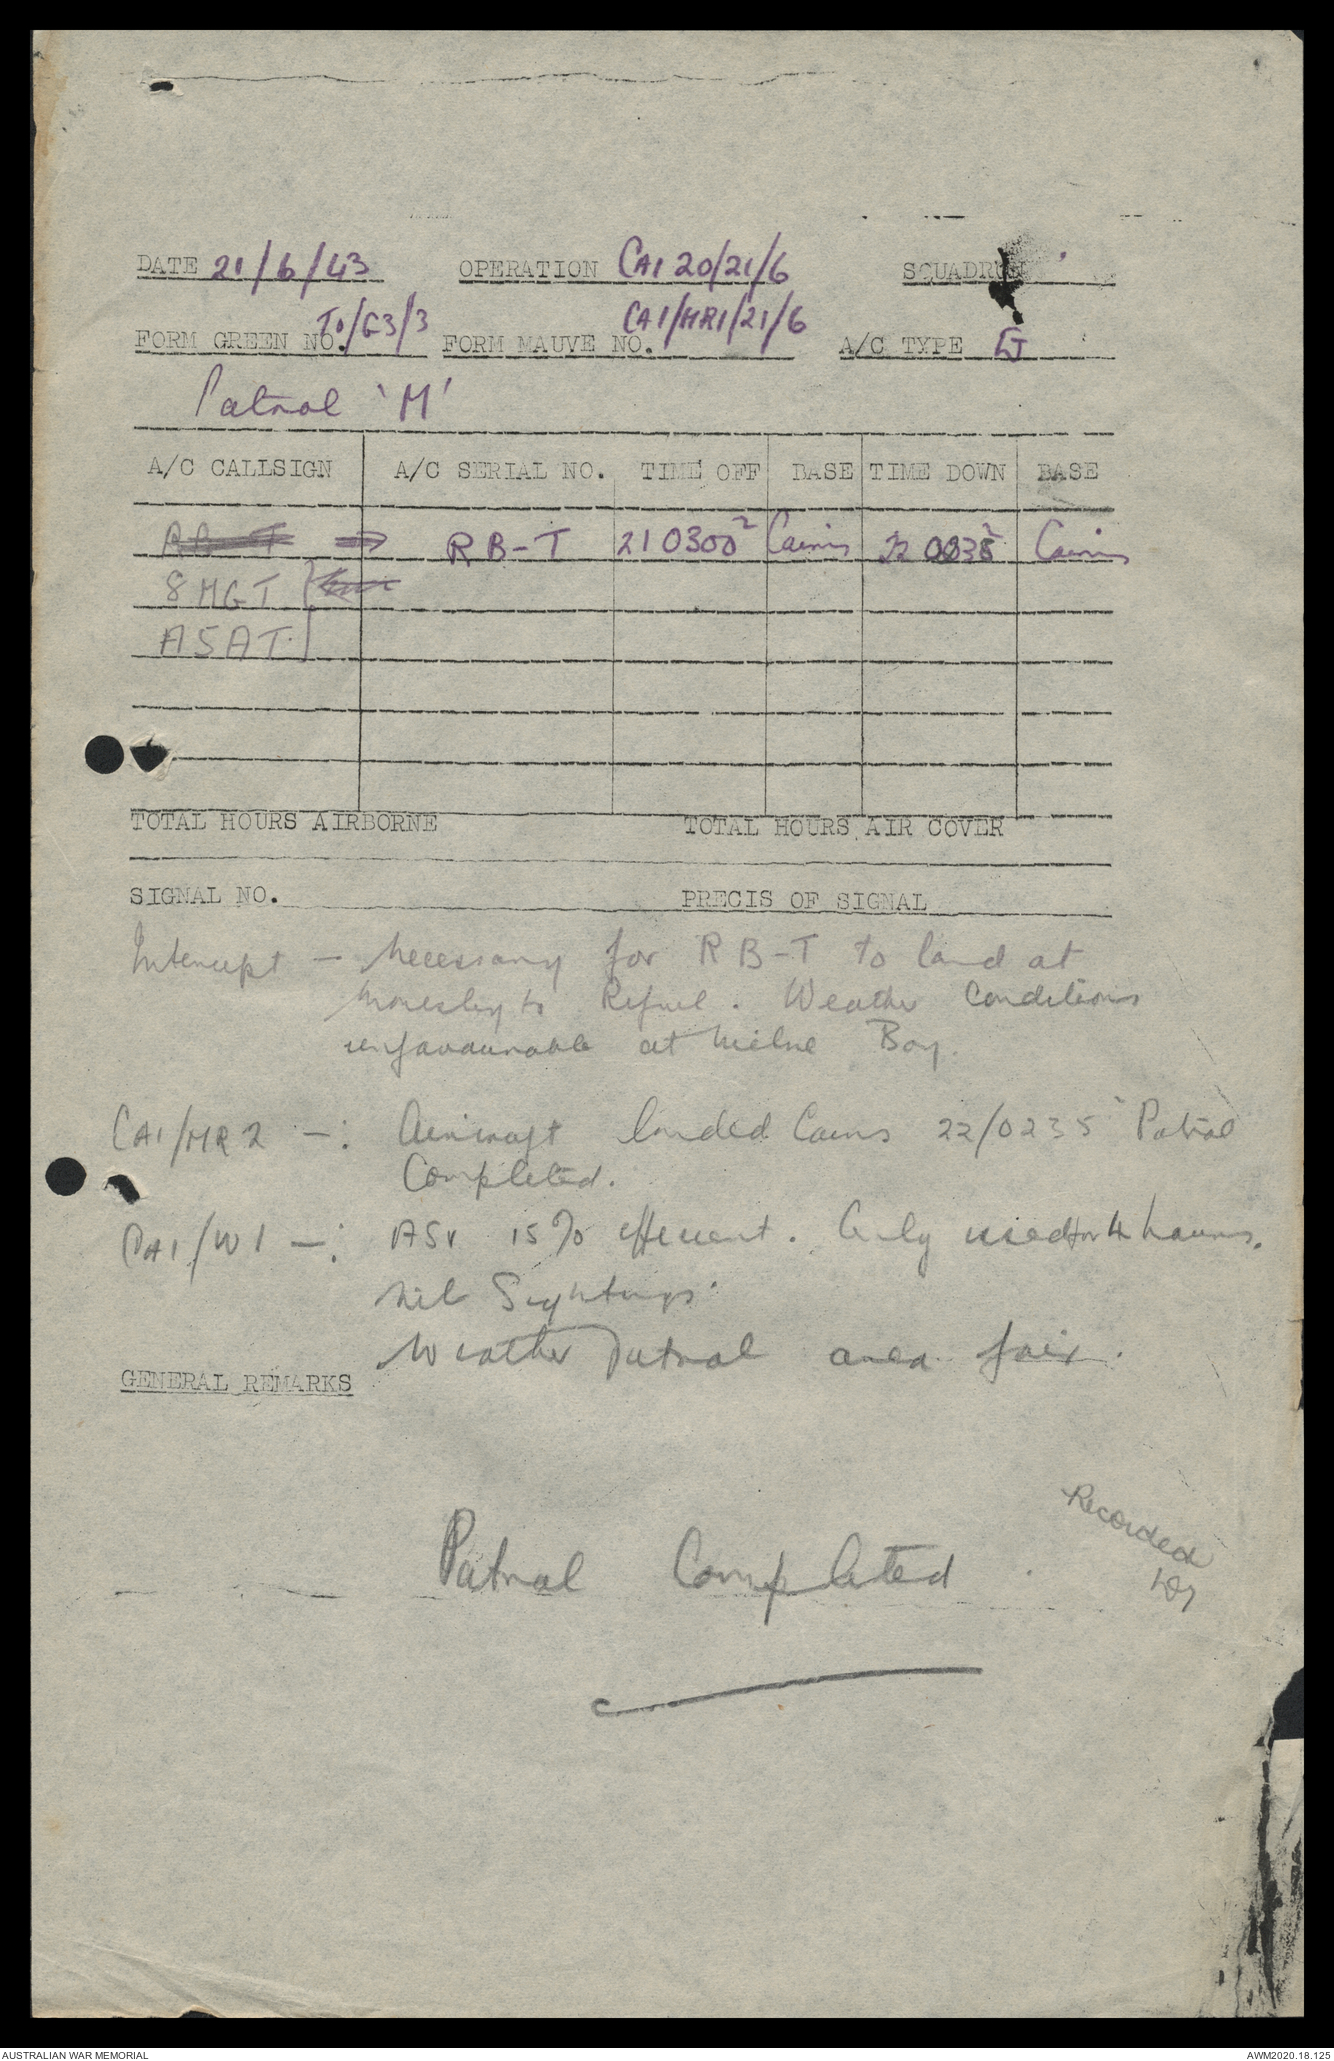 DATE 21/6/43 OPERATION CAI 20/21/6 SQUADRON
FORM GREEN NO. To/G3/3 FORM MAUVE NO. CAI/MR1/21/6 A/C TYPE
Patrol 'M'
A/C CALLSIGN A/C SERIAL NO. TIME OFF BASE TIME DOWN BASE
RB-T RB-T 210300Z Cairns 22 0235Z Cairns
8MGT
A5AT
TOTAL HOURS AIRBORNE TOTAL HOURS AIR COVER
SIGNAL NO. PRECIS OF SIGNAL
Intercept - Necessary for RB-T to land at
Moresby to Refuel. Weather Conditions
unfavourable at Milne Bay.
CAI/MR2 -: Aircraft landed Cairns 22/0235 Patrol
Completed.
CAI/W1 -: ASV 15% efficient. Only used for 4 hours.
Nil Sightings.
Weather Patrol area fair.
GENERAL REMARKS
Patrol Completed.
Recorded
AUSTRALIAN WAR MEMORIAL AWM2020.18.125